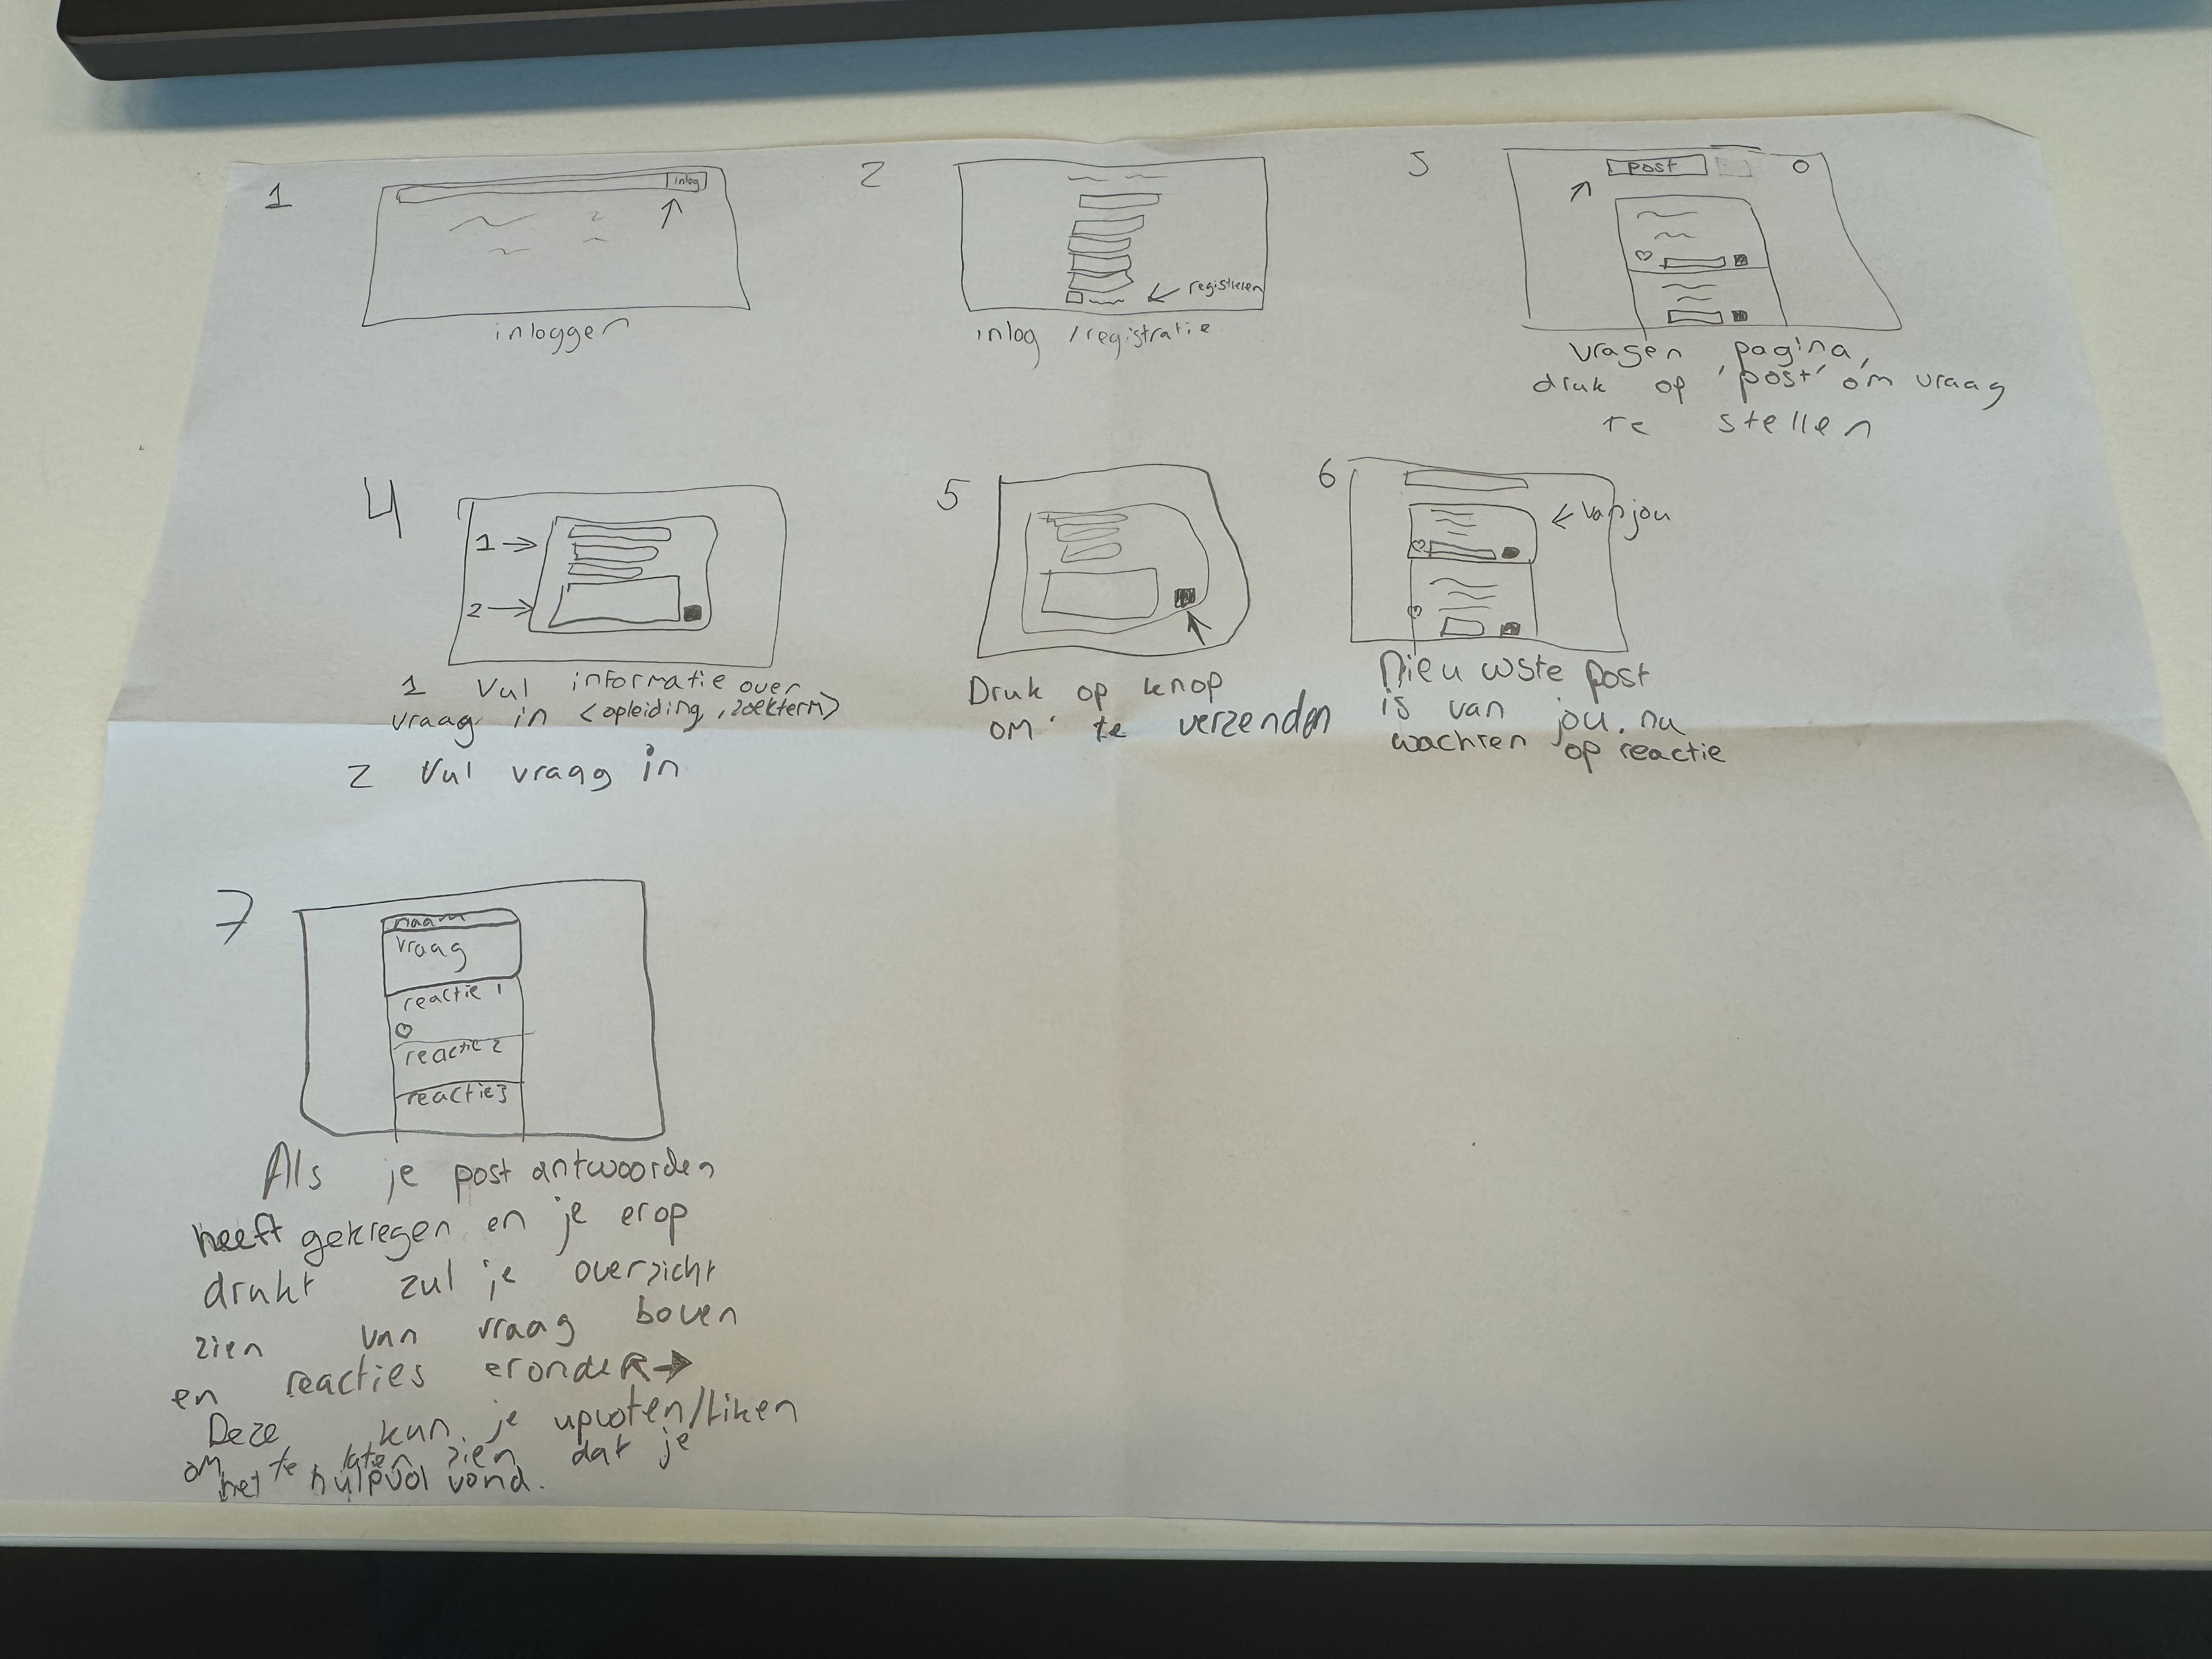 1
inlog
inloggen
2
registreren
inlog / registratie
3
post
vragen pagina,
druk op 'post' om vraag
te stellen
4
1 →
2 →
1 Vul informatie over
vraag in <opleiding, zoekterm>
2 Vul vraag in
5
Druk op knop
om te verzenden
6
← van jou
Nieuwste post
is van jou. nu
wachten op reactie
7
naam
vraag
reactie 1
reactie 2
reactie 3
Als je post antwoorden
heeft gekregen en je erop
drukt zul je overzicht
zien van vraag boven
en reacties eronder →
Deze kun je upvoten/liken
om te laten zien dat je
het hulpvol vond.